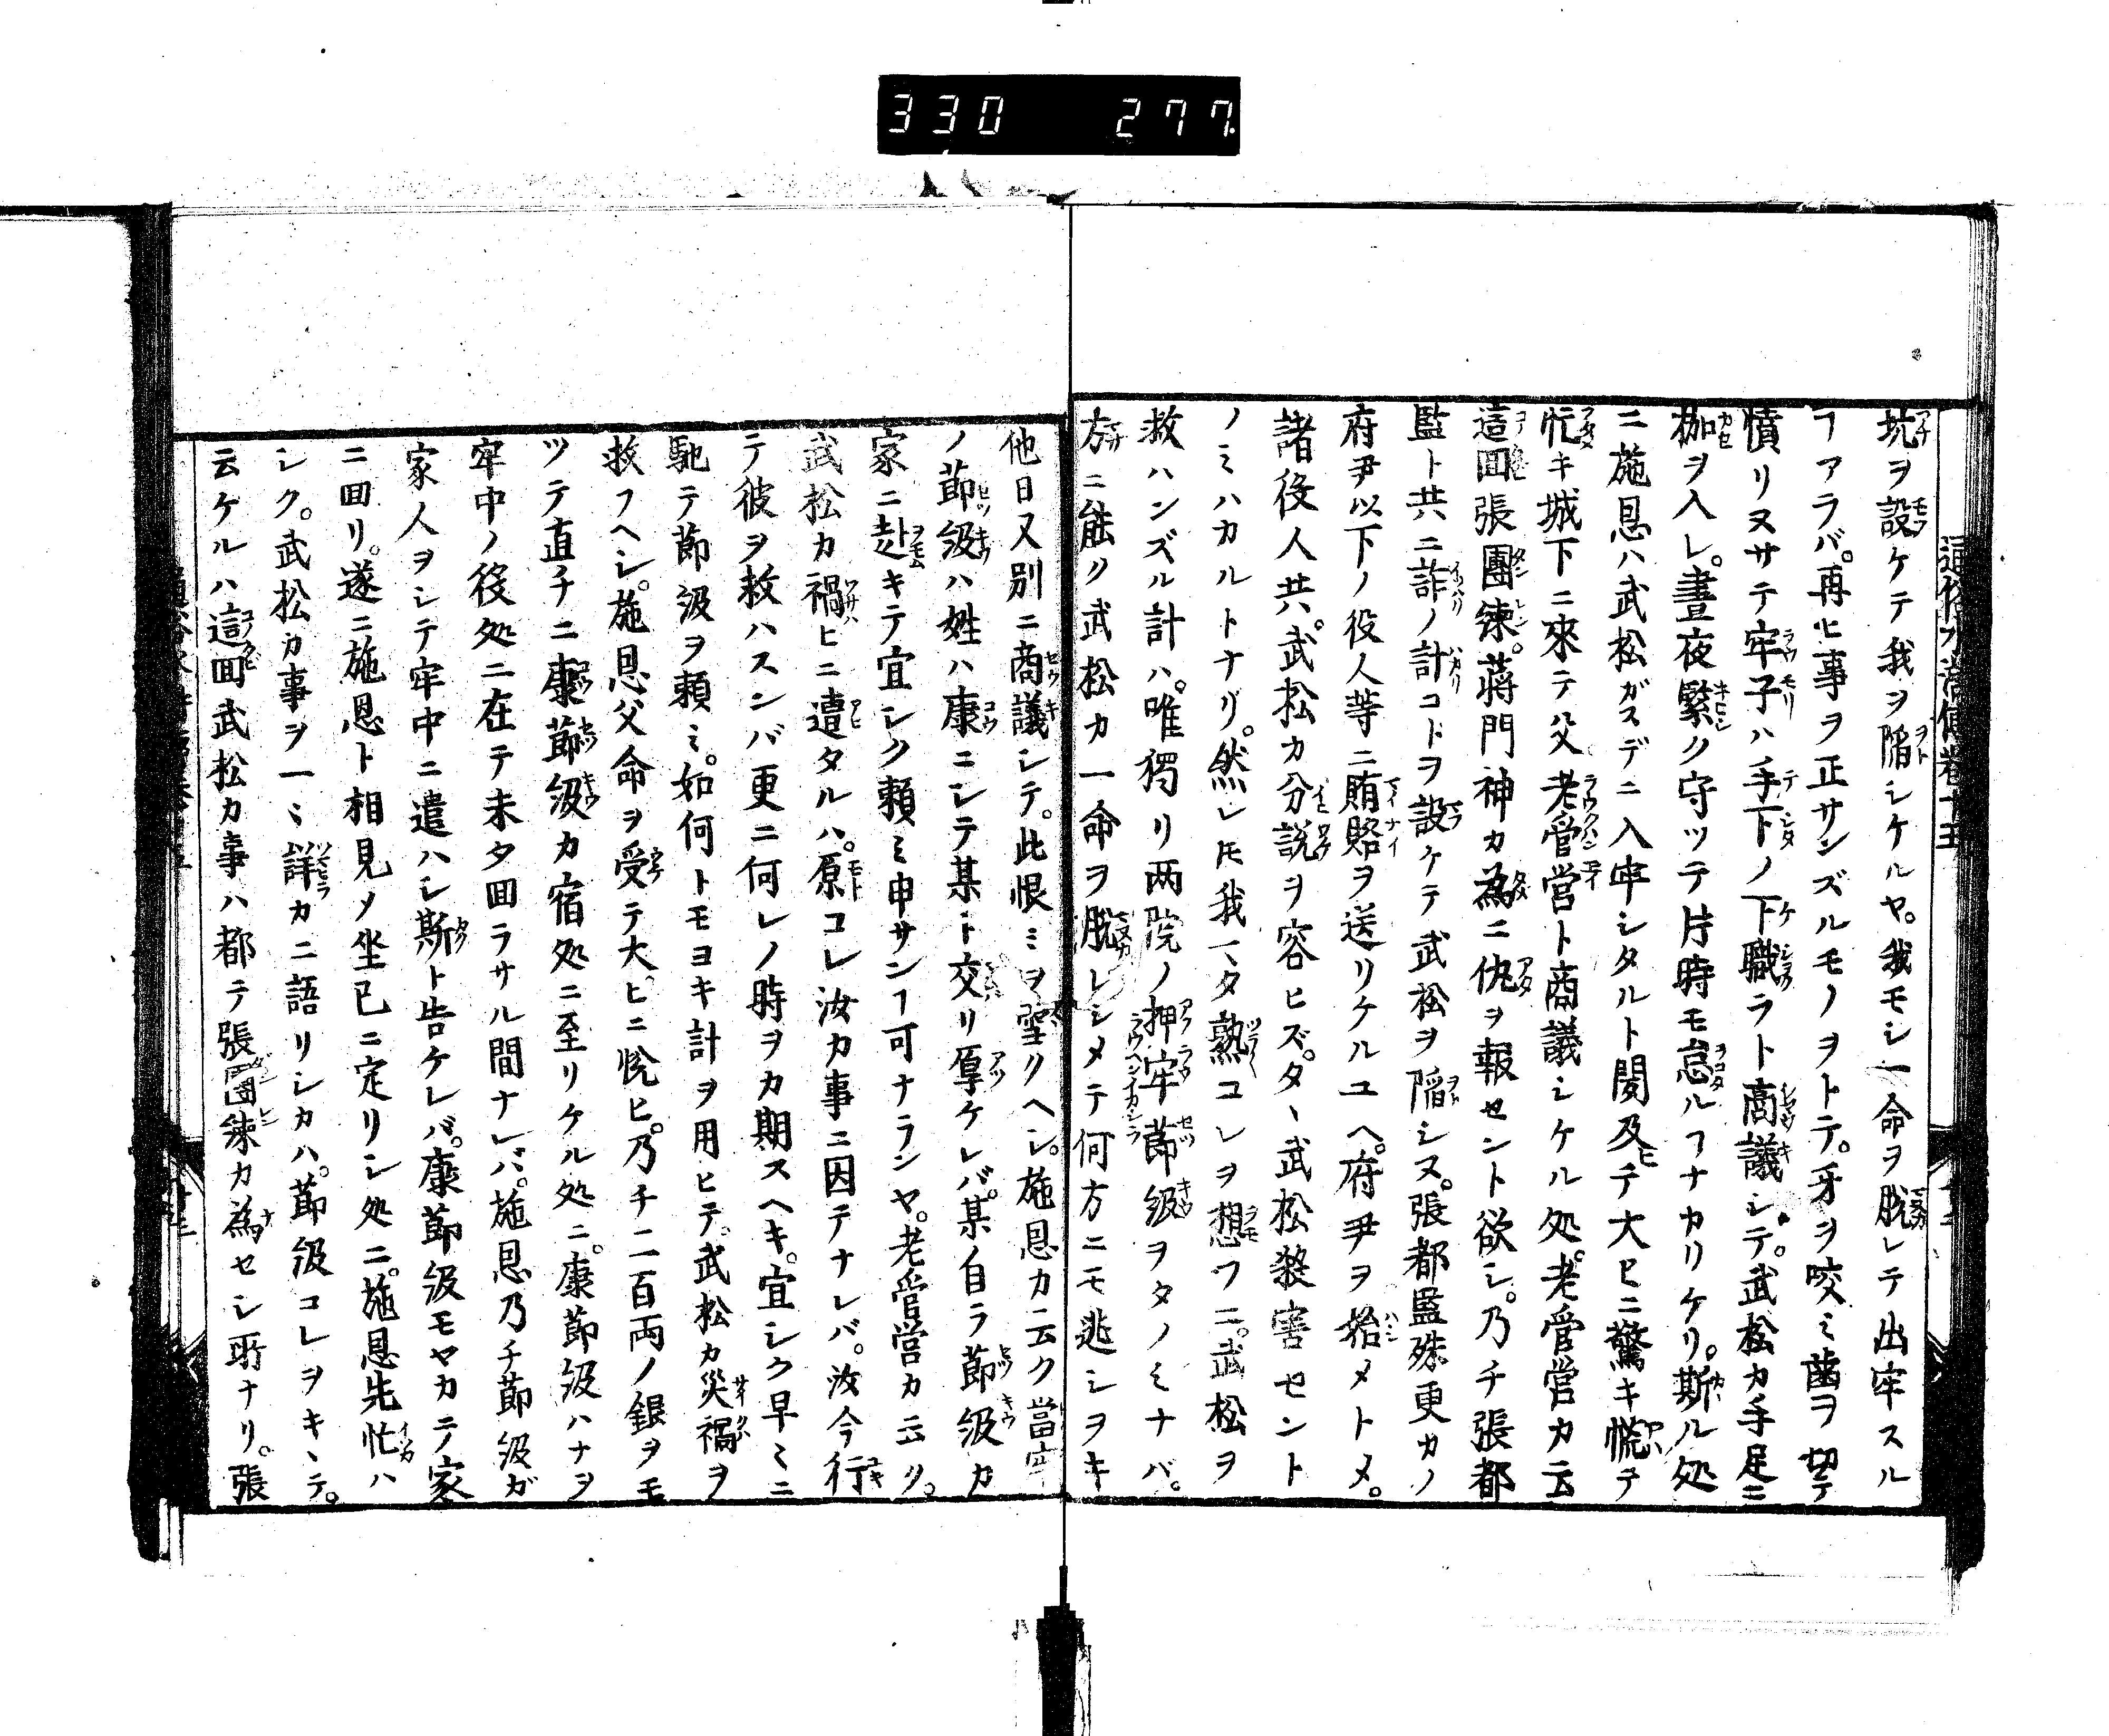 330 277.
通俗水滸傳卷十五
坑ヲ設ケテ我ヲ陷シケルヤ。我モシ一命ヲ脱レテ出牢スル
ヿアラバ。再ヒ事ヲ正サンズルモノヲトテ。牙ヲ咬ミ齒ヲ切テ
憤リヌサテ牢子ハ手下ノ下職ラト商議シテ。武松カ手足ニ
枷ヲ入レ。晝夜緊ク守ツテ片時モ怠ルヿナカリケリ。斯ル処
ニ施恩ハ武松ガスデニ入牢シタルト聞及ヒテ大ヒニ驚キ慌テ
忙キ城下ニ來テ父老管営ト商議シケル処。老管営カ云
這囬張團練。蒋門神カ為ニ仇ヲ報セント欲シ。乃チ張都
監ト共ニ詐ノ計コトヲ設ケテ武松ヲ陷シヌ。張都監殊更カノ
府尹以下ノ役人等ニ賄賂ヲ送リケルユヘ。府尹ヲ始メトメ。
諸役人共。武松カ分説ヲ容ヒズ。タヽ武松殺害セント
ノミハカルトナリ。然レ𪜈我マタ熟コレヲ想フニ。武松ヲ
救ハンズル計ハ。唯獨リ両院ノ押牢節級ヲタノミナバ。
方ニ能ク武松カ一命ヲ脱レシメテ何方ニモ逃シヲキ
他日又別ニ商議シテ。此恨ミヲ雪クヘシ。施恩カ云ク當牢
ノ節級ハ姓ハ康ニシテ某ト交リ厚ケレバ。某自ラ節級カ
家ニ赴キテ宜シク頼ミ申サンヿ可ナランヤ。老管営カ云ク。
武松カ禍ヒニ遭タルハ。原コレ汝カ事ニ因テナレバ。汝今行
テ彼ヲ救ハスンバ更ニ何レノ時ヲカ期スヘキ。宜シク早ミミニ
馳テ節級ヲ頼ミ。如何トモヨキ計ヲ用ヒテ。武松カ災禍ヲ
救フヘシ。施恩父命ヲ受テ大ヒニ悦ヒ。乃チ二百両ノ銀ヲモ
ツテ直チニ康節級カ宿処ニ至リケル処ニ。康節級ハナヲ
牢中ノ役処ニ在テ未タ囬ラサル間ナレバ。施恩乃チ節級ガ
家人ヲシテ牢中ニ遣ハシ斯ト告ケレバ。康節級モヤカテ家
ニ囬リ。遂ニ施恩ト相見ノ坐已ニ定リシ処ニ。施恩先忙ハ
シク。武松カ事ヲ一ミ詳カニ語リシカハ。節級コレヲキヽテ。
云ケルハ這囬武松カ事ハ都テ張團練カ為セシ所ナリ。張